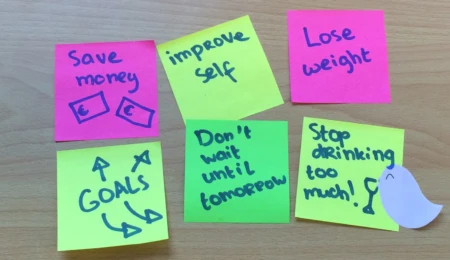 Save
money
€ €
improve
self
Lose
weight
GOALS
Don't
wait
until
tomorrow
Stop
drinking
too
much!